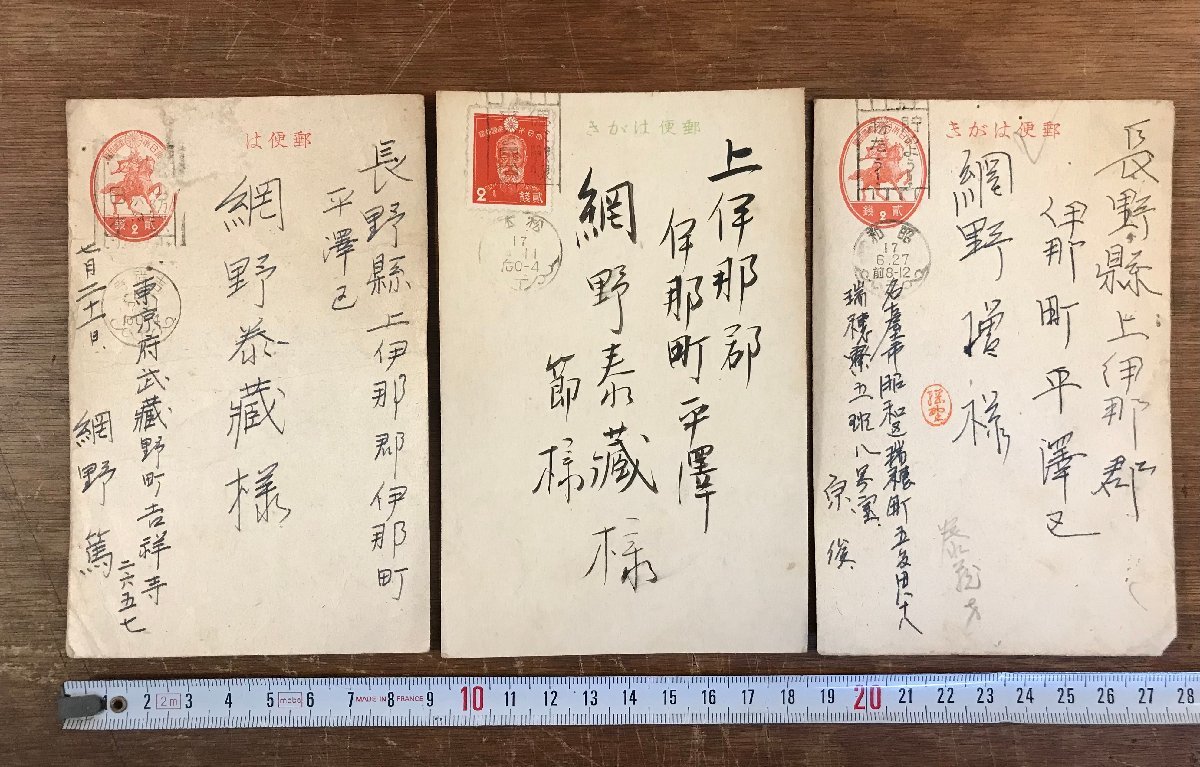 郵便は
長野縣上伊那郡伊那町
平澤区
網野泰藏様
東京府武藏野町吉祥寺
二六五七
網野篤
七月二十一日
貳錢
2
郵便はがき
上伊那郡
伊那町平澤
網野泰藏様
節様
2
貳錢
17
11
郵便はがき
長野縣上伊那郡
伊那町平澤区
網野増様
名古屋市昭和区瑞穂町
瑞穂寮五班八号室
2
貳錢
昭和
17
6.27
前8-12
1 2 3 4 5 6 7 8 9 10 11 12 13 14 15 16 17 18 19 20 21 22 23 24 25 26 27 28
2m
mabo
MADE IN FRANCE